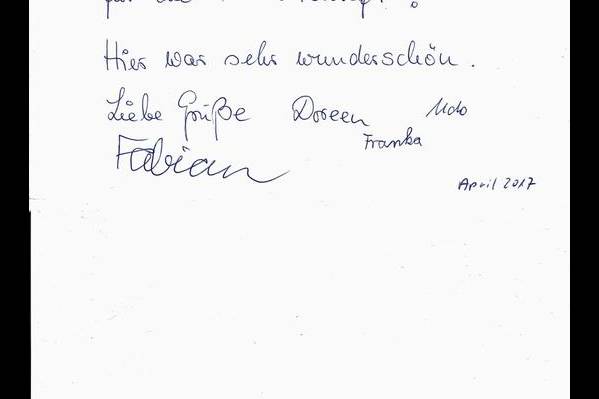 Hier war sehr wunderschön.
Liebe Grüße Doreen Udo
Franka
Fabian
April 2017